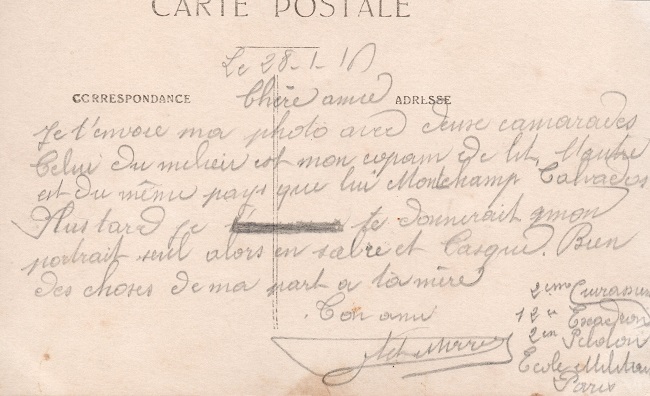 CARTE POSTALE
Le 28-1-1
CORRESPONDANCE
Chère amie
ADRESSE
Je t'envoie ma photo avec deux camarades
Celui du milieu est mon copain de lit, l'autre
est du même pays que lui Montchamp Calvados
Plus tard je te donnerait mon
portrait seul alors en sabre et Casque. Bien
des choses de ma part a ta mère
Ton ami
2eme Cuirassier
12e Escadron
2em Peloton
Ecole Militaire
Paris